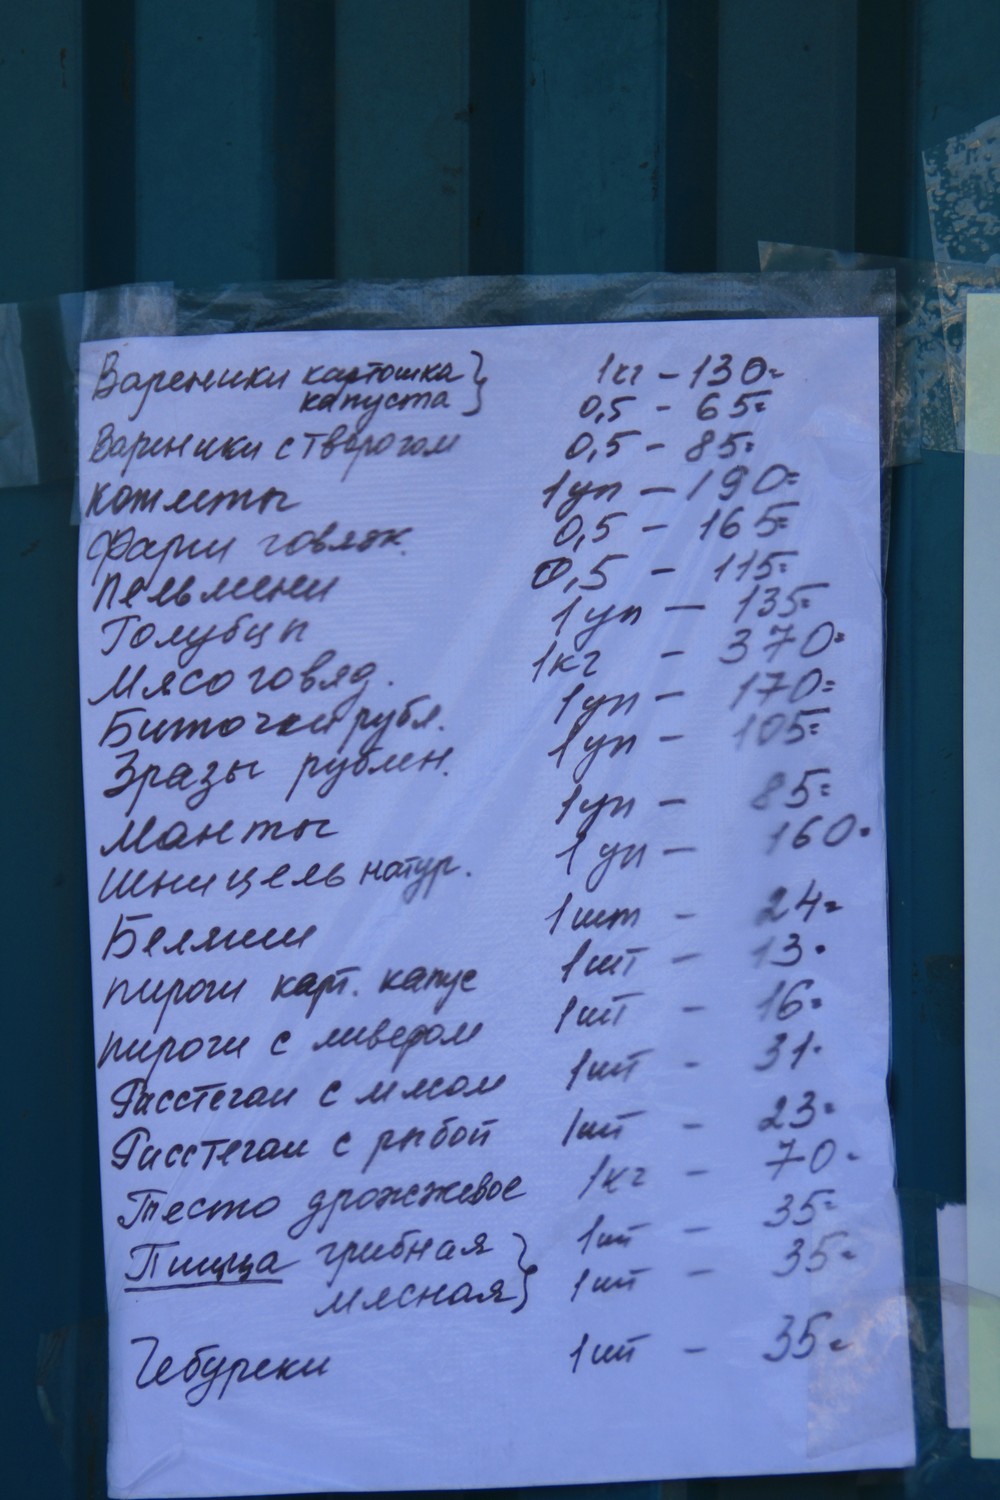 Вареники картошка } 1кг - 130=
капуста } 0,5 - 65=
Вареники с творогом 0,5 - 85=
Котлеты 1уп - 190=
Фарш говяж. 0,5 - 165=
Пельмени 0,5 - 115=
Голубцы 1уп - 135=
Мясо говяд. 1кг - 370=
Биточки рубл. 1уп - 170=
Зразы рублен. 1уп - 105=
Манты 1уп - 85=
Шницель натур. 1уп - 160=
Беляши 1шт - 24=
Пироги карт. капус 1шт - 13=
Пироги с ливером 1шт - 16=
Расстегаи с мясом 1шт - 31=
Расстегаи с рыбой 1шт - 23=
Тесто дрожжевое 1кг - 70=
Пицца грибная } 1шт - 35=
мясная } 1шт - 35=
Чебуреки 1шт - 35=